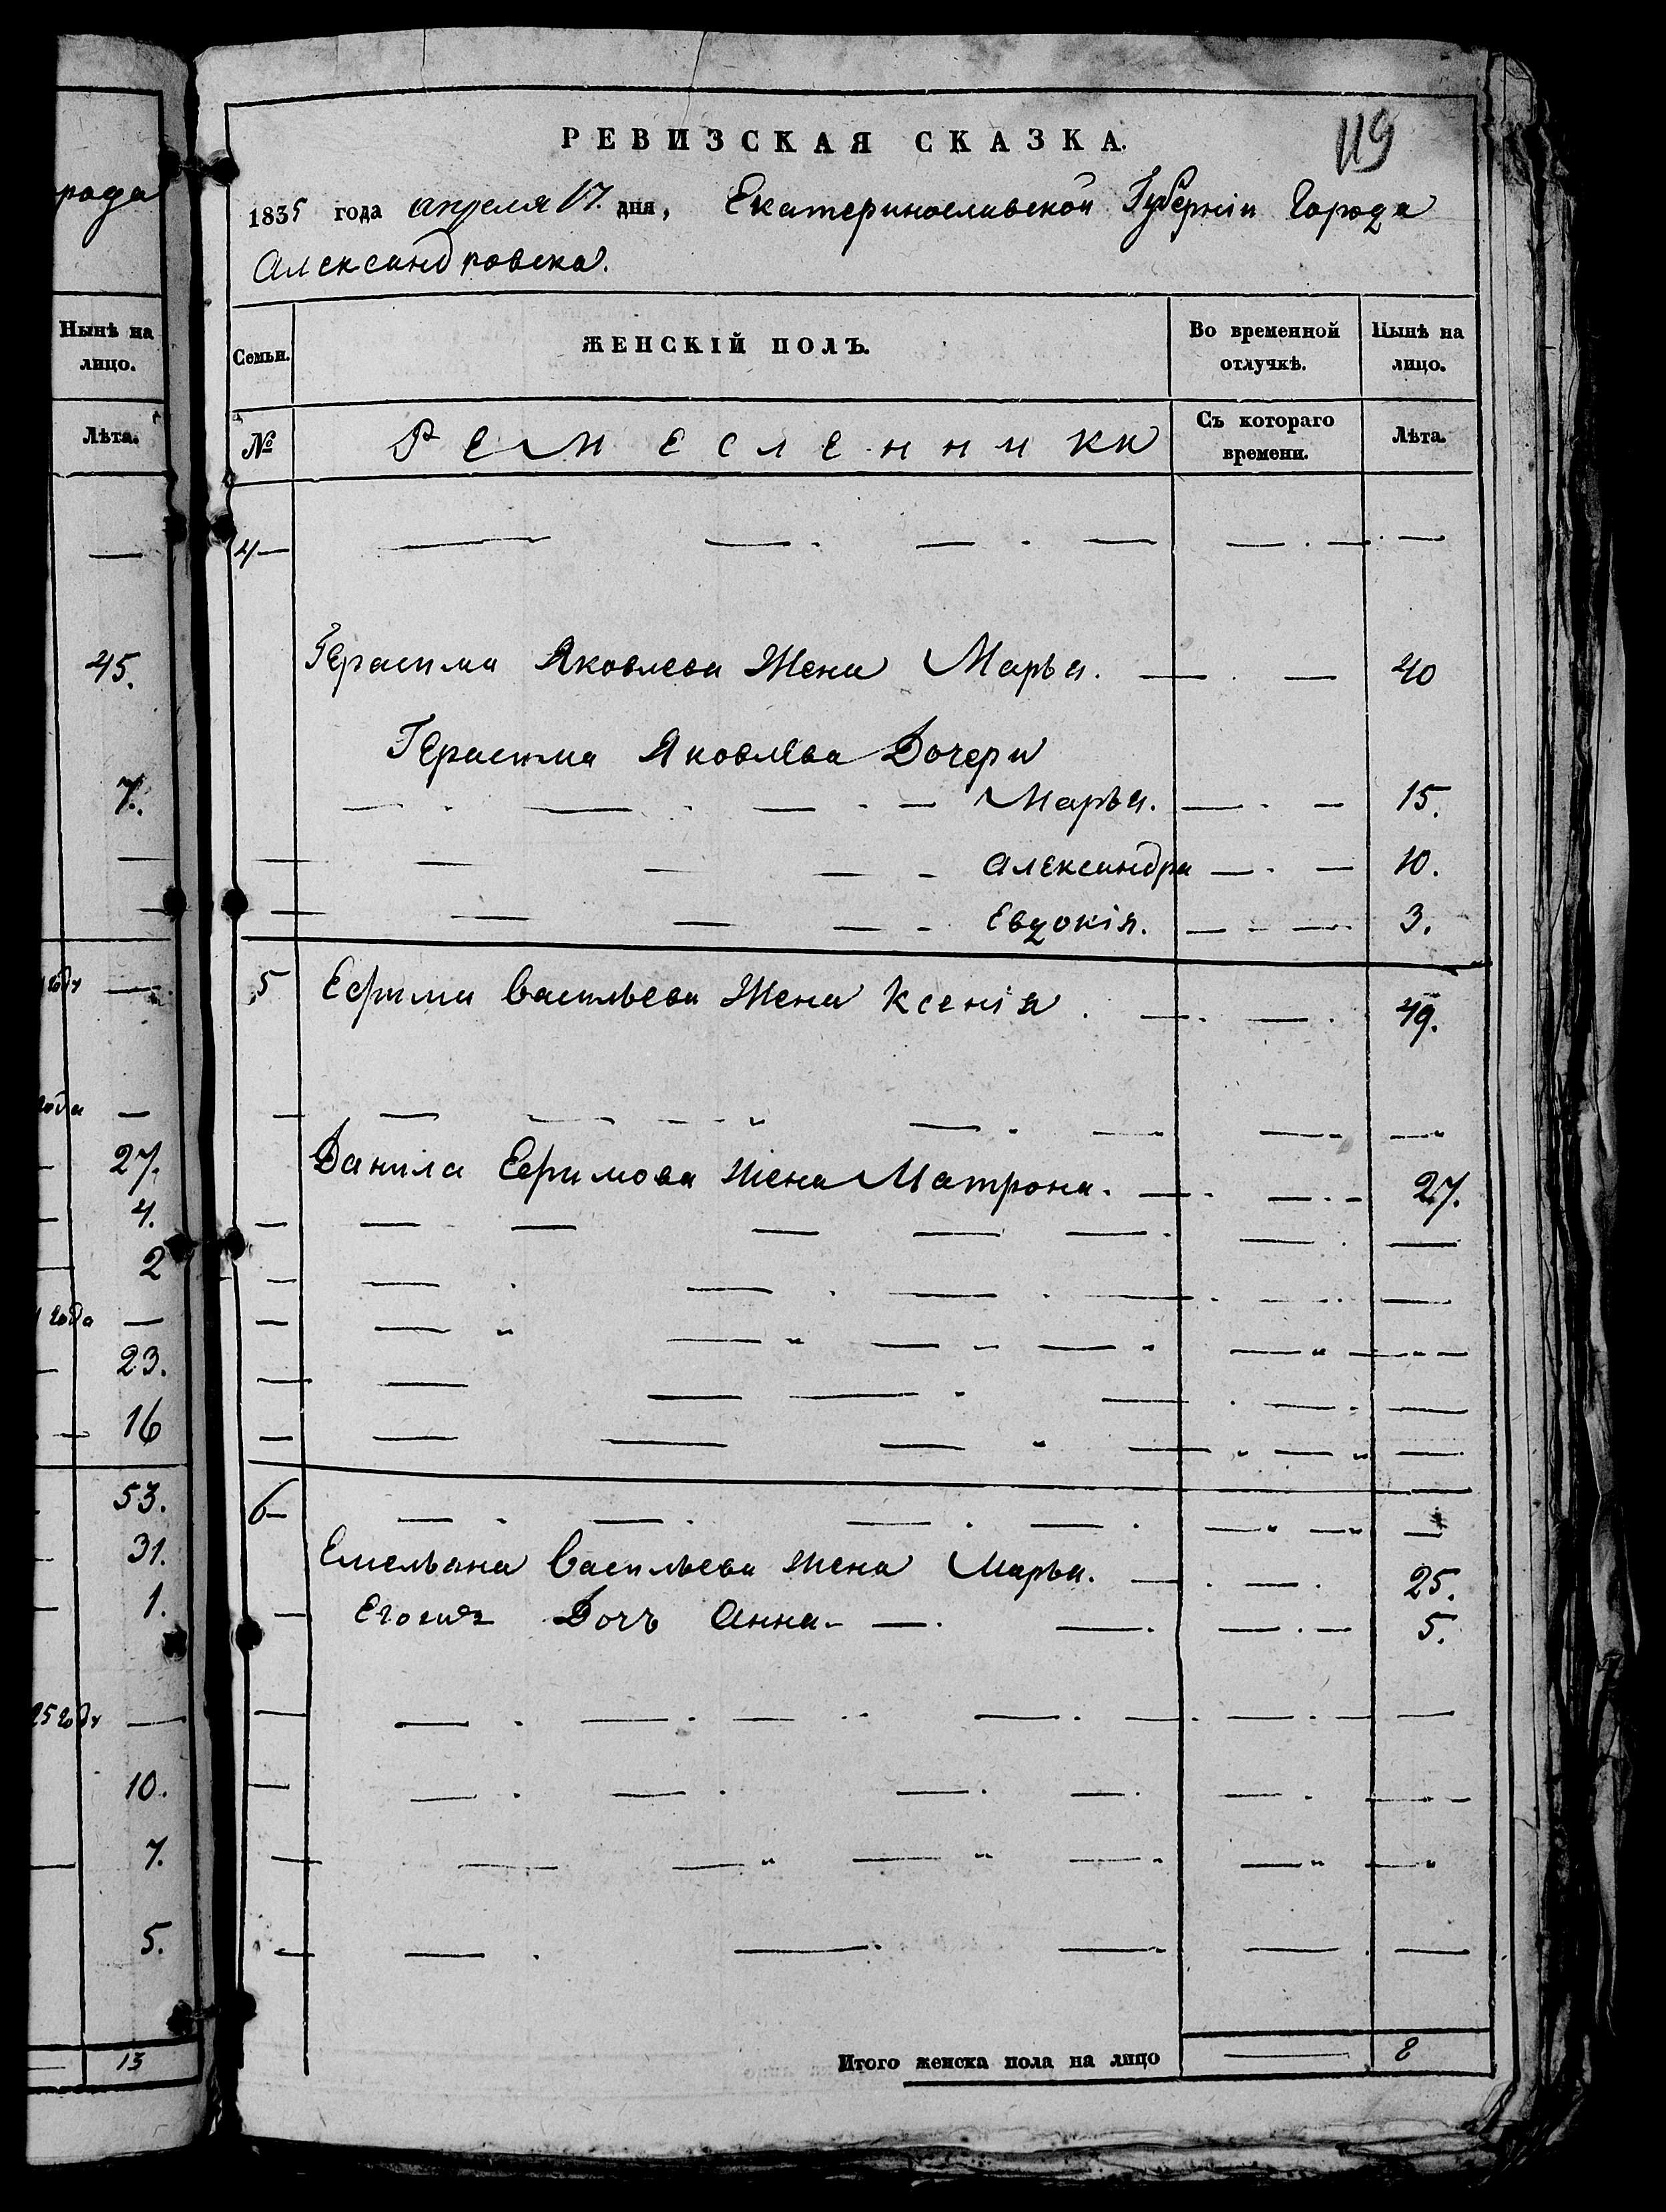 рода
Нынѣ на
лицо.
Лѣта.
45.
7.
году
года
27.
4.
2
года
23.
16
53.
31.
1.
25 году
10.
7.
5.
13
119
РЕВИЗСКАЯ СКАЗКА.
1835 года апреля 17. дня, Екатеринославской Губерніи Города
Александровска.
Семьи.
ЖЕНСКІЙ ПОЛЪ.
Во временной
отлучкѣ.
Нынѣ на
лицо.
№
Ремесленники
Съ котораго
времени.
Лѣта.
4
Герасима Яковлева Жена Марья. 40
Герасима Яковлева Дочери
Марья. 15.
Александра 10.
Евдокія. 3.
5 Ефима Васильева Жена Ксенія 49.
Данила Ефимова жена Матрона. 27.
6
Емельяна Васильева жена Марья. 25.
Дочъ Анна. 5.
Итого женска пола на лицо 8